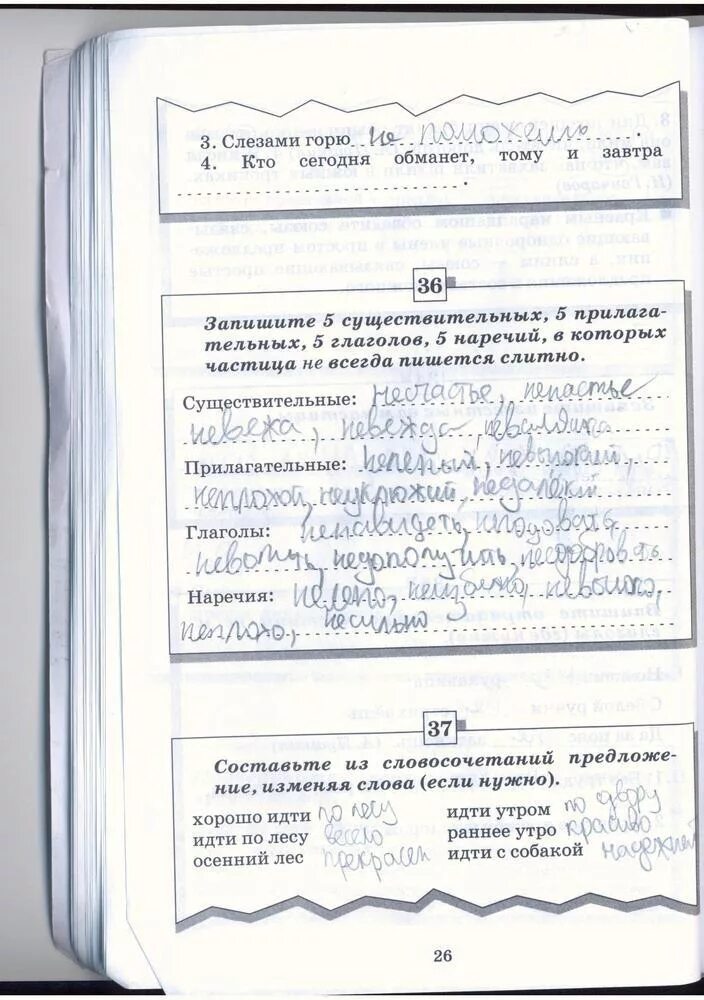 3. Слезами горю не поможешь.
4. Кто сегодня обманет, тому и завтра
36
Запишите 5 существительных, 5 прилага-
тельных, 5 глаголов, 5 наречий, в которых
частица не всегда пишется слитно.
Существительные: несчастье, непастье
невежа, невежда, невидимка
Прилагательные: нелепый, невысокий,
неплохой, неуклюжий, недалёкий
Глаголы: ненавидеть,
недополучить,
Наречия: нелепо, неизбежно, невысоко,
неплохо, несильно
37
Составьте из словосочетаний предложе-
ние, изменяя слова (если нужно).
хорошо идти по лесу
идти по лесу весело
осенний лес прекрасен
идти утром по двору
раннее утро красиво
идти с собакой
26